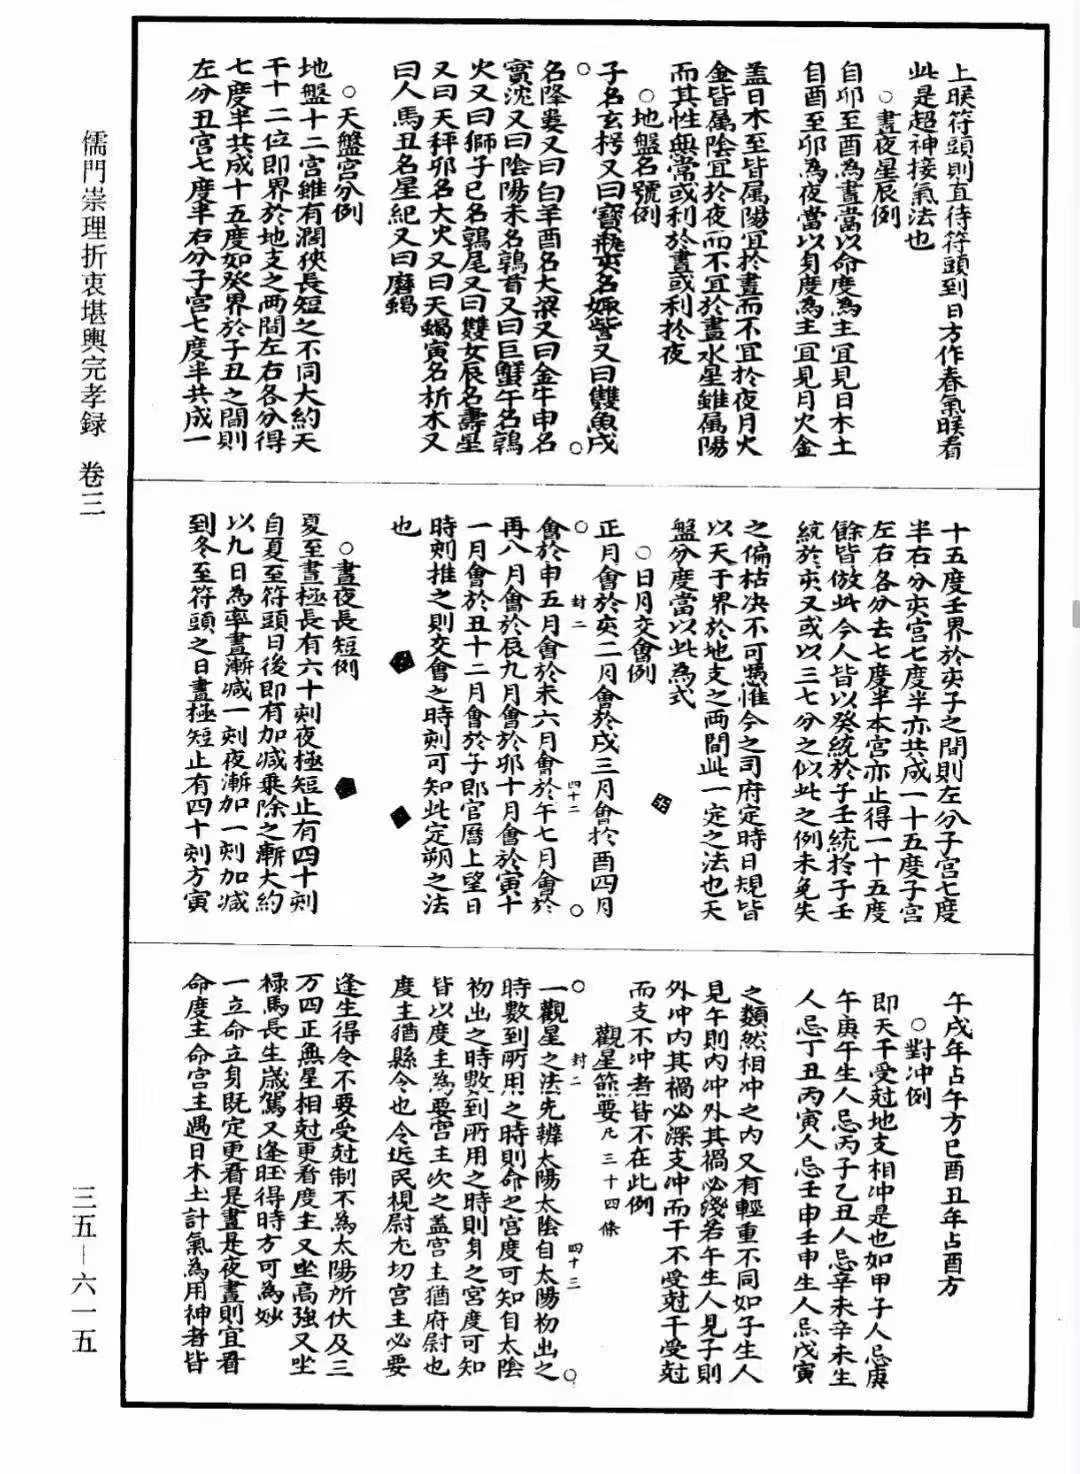 上睺符頭則直待符頭到日方作春氣睺看
此是超神接氣法也
○晝夜星辰例
自卯至酉為晝當以命度為主宜見日木土
自酉至卯為夜當以身度為主宜見月火金
盖日木至皆属陽宜於晝而不宜於夜月火
金皆属陰宜於夜而不宜於晝水星雖属陽
而其性無常或利於晝或利於夜
○地盤名號例
子名玄枵又曰寶瓶亥名娵訾又曰雙魚戌
名降婁又曰白羊酉名大梁又曰金牛申名
實沈又曰陰陽未名鶉首又曰巨蟹午名鶉
火又曰獅子巳名鶉尾又曰雙女辰名壽星
又曰天秤卯名大火又曰天蝎寅名析木又
曰人馬丑名星紀又曰磨蝎
○天盤宫分例
地盤十二宫雖有濶狹長短之不同大約天
干十二位即界於地支之两間左右各分得
七度半共成十五度如癸界於子丑之間則
左分丑宫七度半右分子宫七度半共成一
十五度壬界於亥子之間則左分子宫七度
半右分亥宫七度半亦共成一十五度子宫
左右各分去七度半本宫亦止得一十五度
餘皆倣此今人皆以癸統於子壬統於子壬
統於亥又或以三七分之似此之例未免失
之偏枯决不可慿惟今之司府定時日規皆
以天于界於地支之两間此一定之法也天
盤分度當以此為式
○日月交會例
正月會於亥二月會於戌三月會於酉四月
會於申五月會於未六月會於午七月會於
封二
四十二
再八月會於辰九月會於卯十月會於寅十
一月會於丑十二月會於子即官曆上望日
時刻推之則交會之時刻可知此定朔之法
也
○晝夜長短例
夏至晝極長有六十刻夜極短止有四十刻
自夏至符頭日後即有加减乗除之漸大約
以九日為率晝漸减一刻夜漸加一刻加减
到冬至符頭之日晝極短止有四十刻方寅
午戌年占午方巳酉丑年占酉方
○對冲例
即天干受尅地支相冲是也如甲子人忌庚
午庚午生人忌丙子乙丑人忌辛未辛未生
人忌丁丑丙寅人忌壬申壬申生人忌戊寅
之類然相冲之内又有輕重不同如子生人
見午則内冲外其禍必淺若午生人見子則
外冲内其禍必深支冲而干不受尅干受尅
而支不冲者皆不在此例
觀星節要凡三十四條
一觀星之法先辨太陽太陰自太陽初出之
封二
四十三
時數到所用之時則命之宫度可知自太陰
初出之時數到所用之時則身之宫度可知
皆以度主為要宫主次之盖宫主猶府尉也
度主猶縣令也令近民視尉尤切宫主必要
逢生得令不要受尅制不為太陽所伏及三
方四正無星相尅更看度主又坐高強又坐
禄馬長生歲駕又逢旺得時方可為妙
一立命立身既定更看是晝是夜晝則宜看
命度主命宫主遇日木土計氣為用神者皆
儒門崇理折衷堪輿完孝録 卷三
三五—六一五